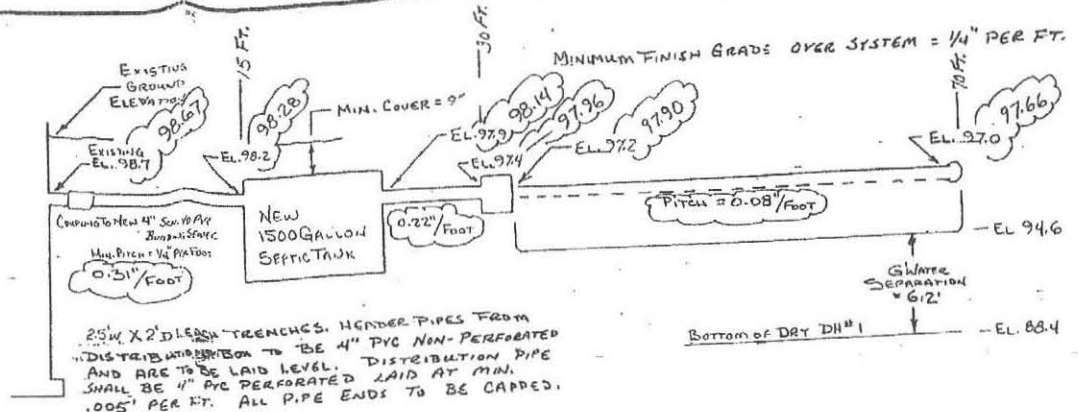 15 FT.
30 FT.
MINIMUM FINISH GRADE OVER SYSTEM = 1/4" PER FT.
70 FT.
EXISTING
GROUND
ELEVATION
98.67
98.28
MIN. COVER = 9"
98.14
97.96
97.90
97.66
EXISTING
EL. 98.7
EL. 98.2
EL. 97.9
EL. 97.4
EL. 97.2
EL. 97.0
COUPLING TO NEW 4" SCH. 40 PVC
BUILDING SEWER
MIN. PITCH = 1/4" PER FOOT
0.31"/FOOT
NEW
1500 GALLON
SEPTIC TANK
0.22"/FOOT
PITCH = 0.08"/FOOT
EL 94.6
G'WATER
SEPARATION
= 6.2'
BOTTOM OF DRY DH#1
EL. 88.4
2.5'W X 2'D LEACH TRENCHES. HEADER PIPES FROM
DISTRIBUTION BOX TO BE 4" PVC NON-PERFORATED
AND ARE TO BE LAID LEVEL. DISTRIBUTION PIPE
SHALL BE 4" PVC PERFORATED LAID AT MIN.
.005' PER FT. ALL PIPE ENDS TO BE CAPPED.